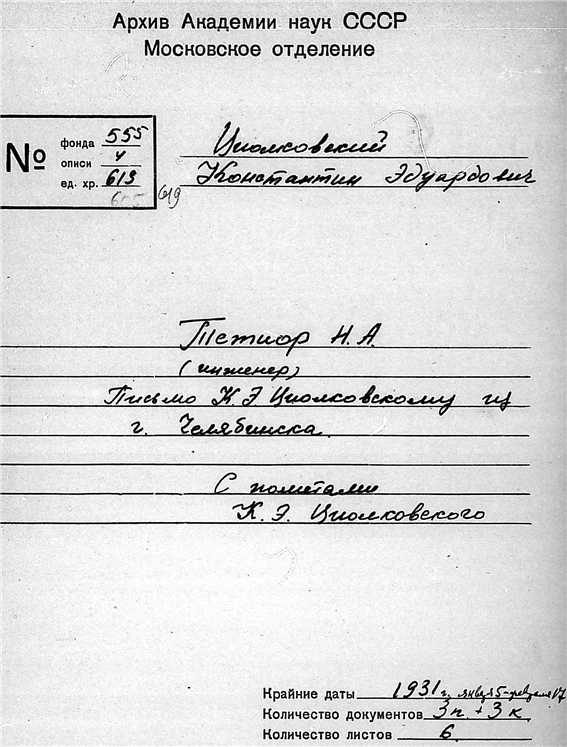 Архив Академии наук СССР
Московское отделение
№
фонда 555
описи 4
ед. хр. 613
619
Циолковский
Константин Эдуардович
Тетиор Н.А.
(инженер)
Письмо К.Э. Циолковскому из
г. Челябинска.
С пометами
К. Э. Циолковского
Крайние даты 1931 г. января 5 - февраля 17
Количество документов 3п. + 3к
Количество листов 6